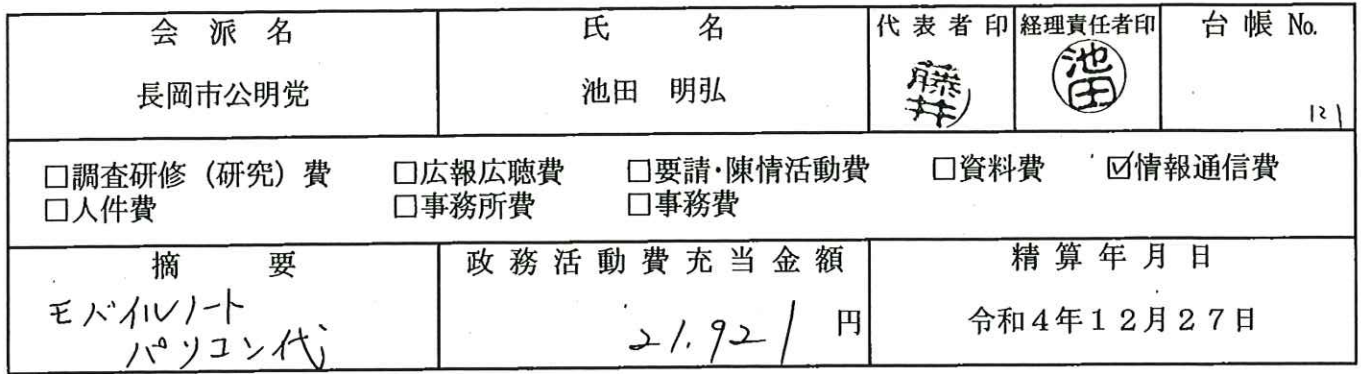 会派名 氏名 代表者印 経理責任者印 台帳No.
長岡市公明党 池田 明弘 藤井 池田 121
□調査研修(研究)費 □広報広聴費 □要請・陳情活動費 □資料費 ☑情報通信費
□人件費 □事務所費 □事務費
摘要 政務活動費充当金額 精算年月日
モバイルノート
パソコン代 21.921 円 令和4年12月27日